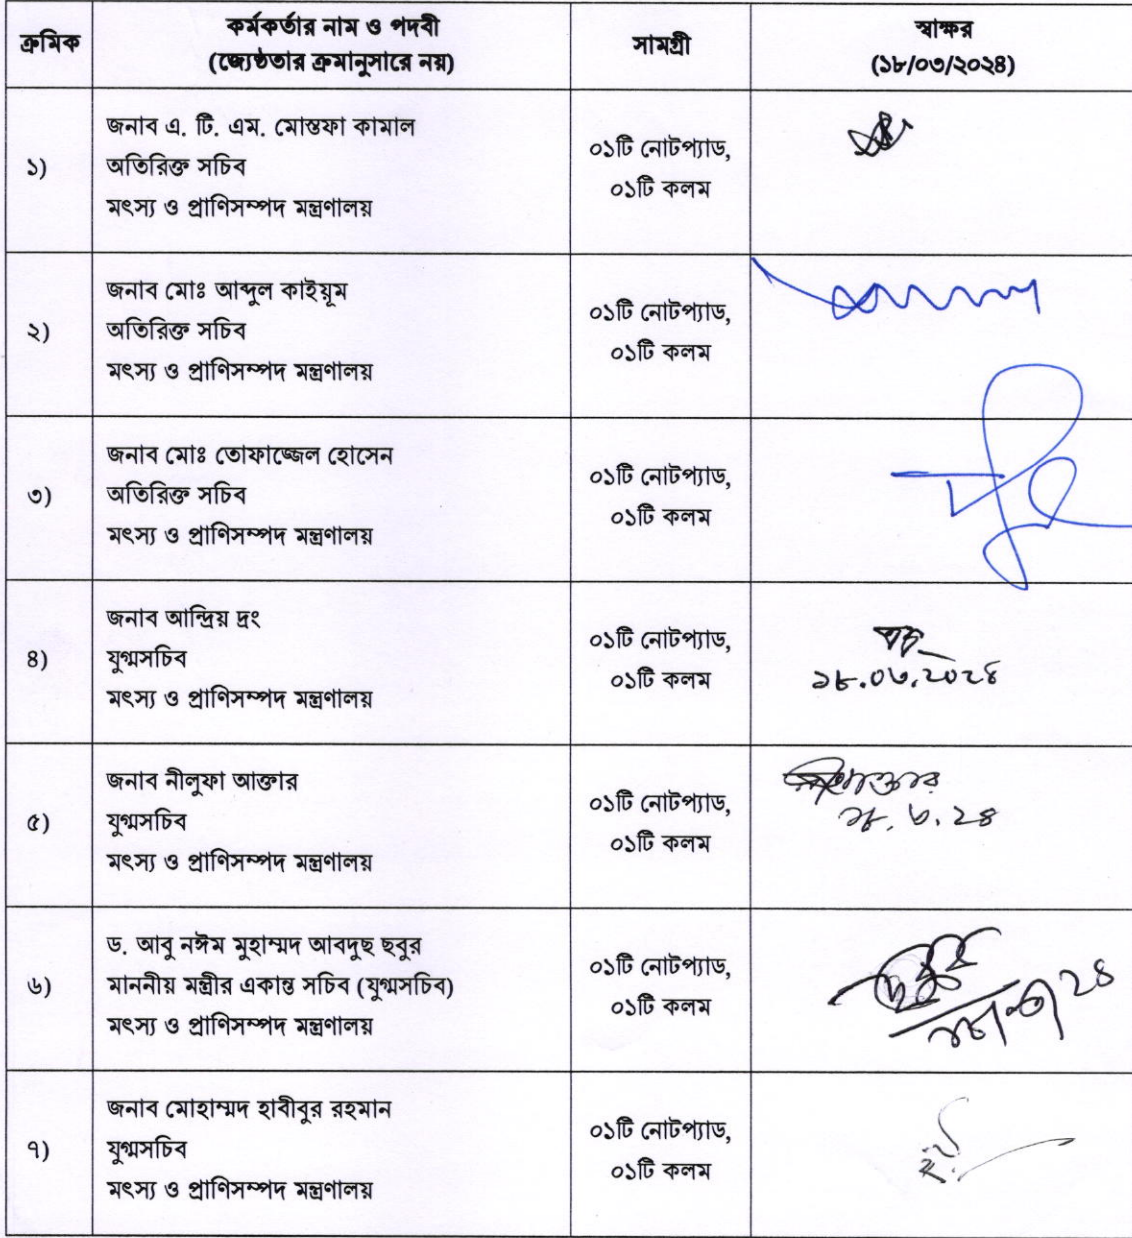 ক্রমিক
কর্মকর্তার নাম ও পদবী
(জ্যেষ্ঠতার ক্রমানুসারে নয়)
সামগ্রী
স্বাক্ষর
(১৮/০৩/২০২৪)
১)
জনাব এ. টি. এম. মোস্তফা কামাল
অতিরিক্ত সচিব
মৎস্য ও প্রাণিসম্পদ মন্ত্রণালয়
০১টি নোটপ্যাড,
০১টি কলম
২)
জনাব মোঃ আব্দুল কাইয়ূম
অতিরিক্ত সচিব
মৎস্য ও প্রাণিসম্পদ মন্ত্রণালয়
০১টি নোটপ্যাড,
০১টি কলম
৩)
জনাব মোঃ তোফাজ্জেল হোসেন
অতিরিক্ত সচিব
মৎস্য ও প্রাণিসম্পদ মন্ত্রণালয়
০১টি নোটপ্যাড,
০১টি কলম
৪)
জনাব আন্দ্রিয় দ্রং
যুগ্মসচিব
মৎস্য ও প্রাণিসম্পদ মন্ত্রণালয়
০১টি নোটপ্যাড,
০১টি কলম
১৮.০৩.২০২৪
৫)
জনাব নীলুফা আক্তার
যুগ্মসচিব
মৎস্য ও প্রাণিসম্পদ মন্ত্রণালয়
০১টি নোটপ্যাড,
০১টি কলম
১৮.৩.২৪
৬)
ড. আবু নঈম মুহাম্মদ আবদুছ ছবুর
মাননীয় মন্ত্রীর একান্ত সচিব (যুগ্মসচিব)
মৎস্য ও প্রাণিসম্পদ মন্ত্রণালয়
০১টি নোটপ্যাড,
০১টি কলম
৭)
জনাব মোহাম্মদ হাবীবুর রহমান
যুগ্মসচিব
মৎস্য ও প্রাণিসম্পদ মন্ত্রণালয়
০১টি নোটপ্যাড,
০১টি কলম